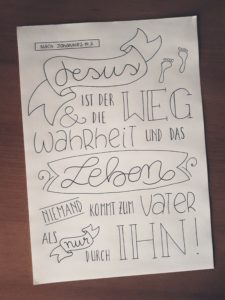 NACH JOHANNES 14,6
Jesus
IST DER WEG
& DIE
Wahrheit UND DAS
Leben
NIEMAND KOMMT ZUM VATER
ALS nur DURCH IHN!